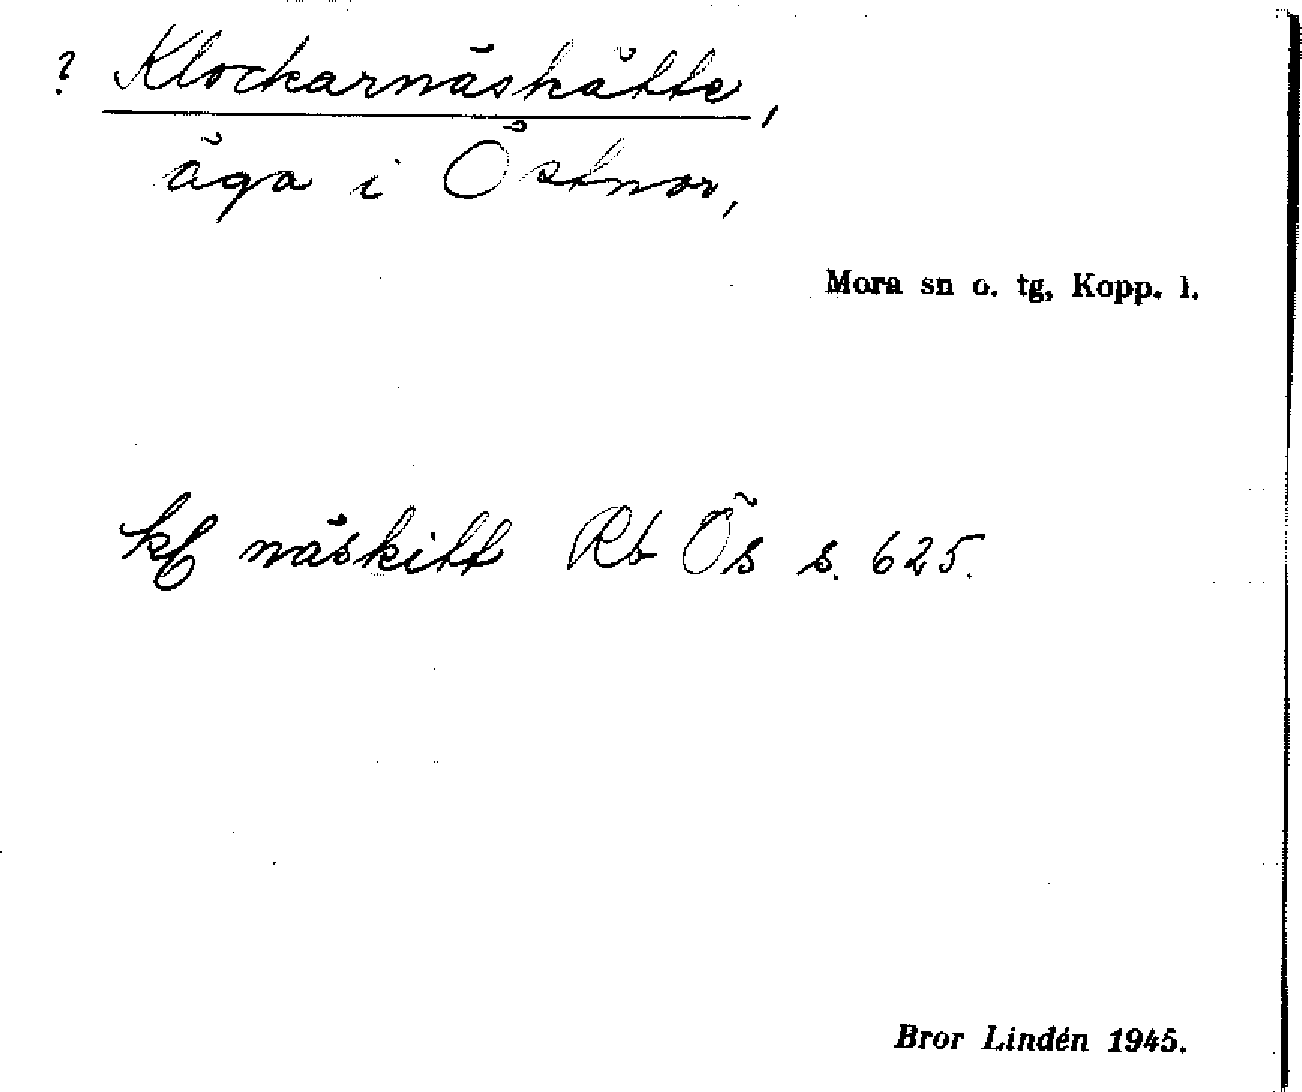 ? Klockarnäskätte,
äga i Östnor,
Mora sn o. tg, Kopp. l.
näskitt Rb Ös s. 625.
Bror Lindén 1945.